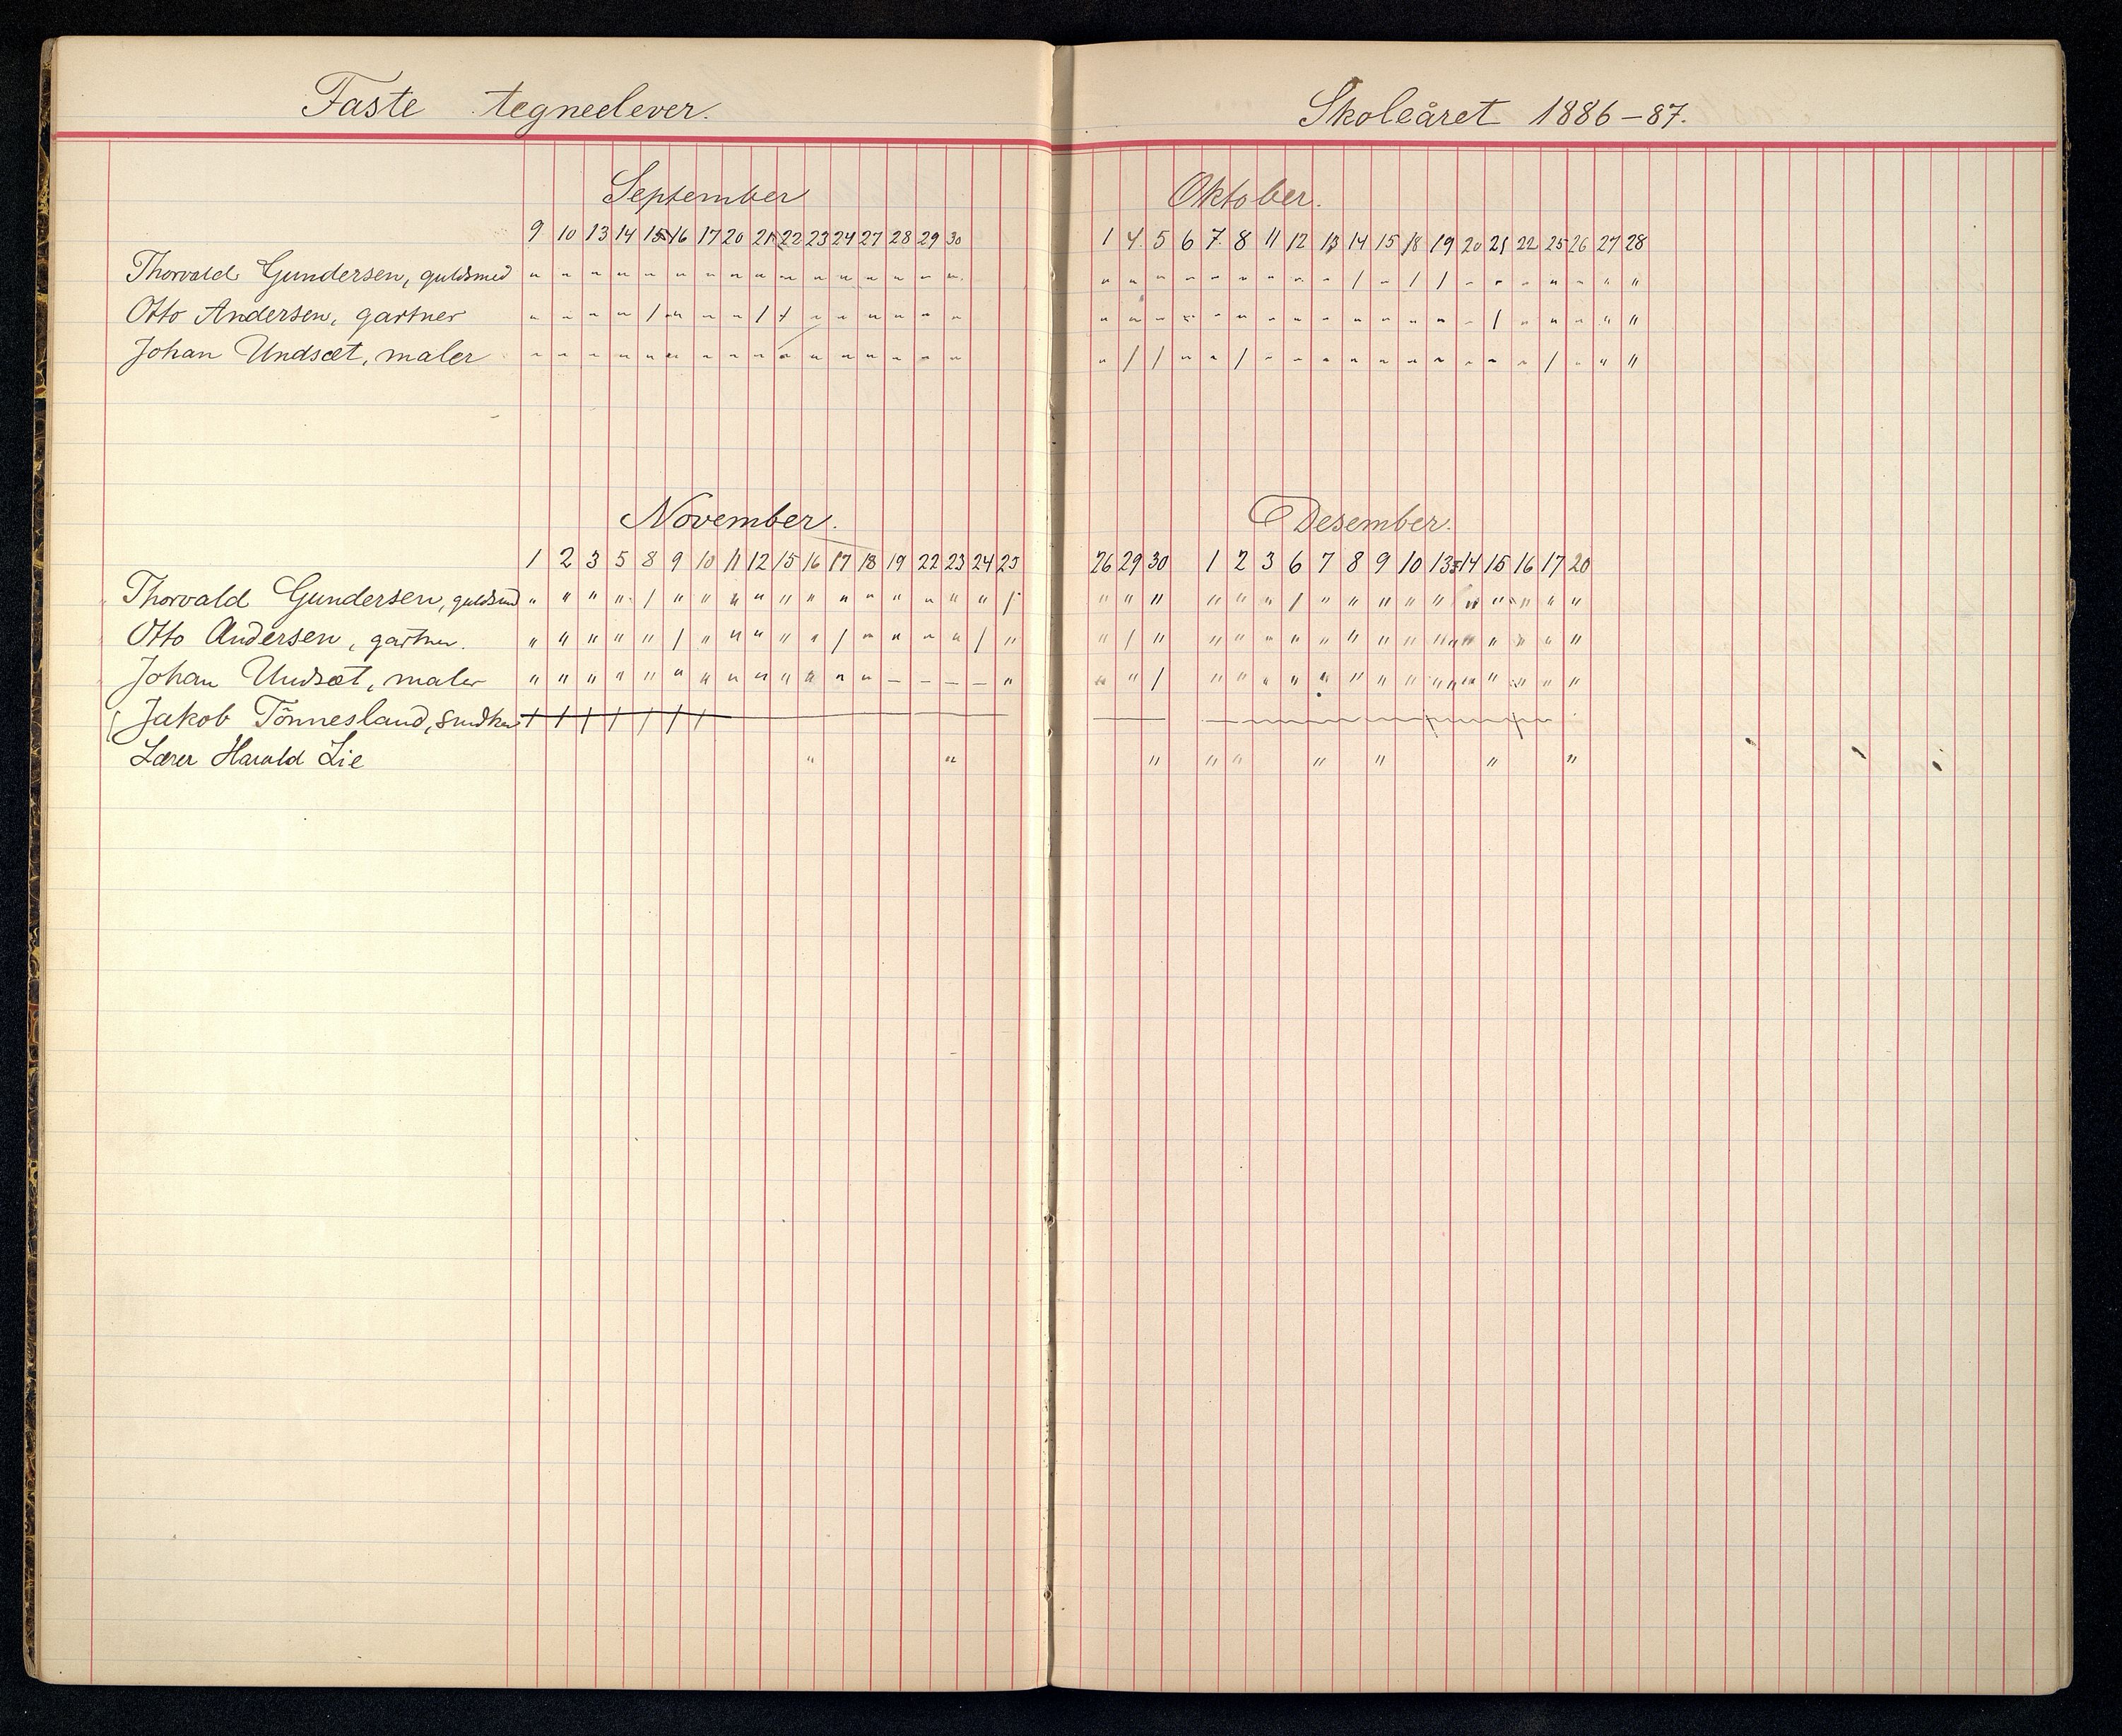 Faste tegneelever.
Skoleåret 1886-87.
September
Oktober.
9 10 13 14 15 16 17 20 21 22 23 24 27 28 29 30
1 4 5 6 7 8 11 12 13 14 15 18 19 20 21 22 25 26 27 28
Thorvald Gundersen, guldsmed " " " " " " " " " " " " " " " " " " " " " " " " " / " / / " " " " " " "
Otto Andersen, gartner " " " " / " " " / / " " " " " " " " " " " " " " " " " " " " / " " " " "
Johan Undsæt, maler " " " " " " " " " " " " " " " " " / / " " / " " " " " " " " " " / " " "
November.
Desember.
1 2 3 5 8 9 10 11 12 15 16 17 18 19 22 23 24 25
26 29 30 1 2 3 6 7 8 9 10 13 14 15 16 17 20
Thorvald Gundersen, guldsmd " " " " / " " " " " " " " " " " " / " " " " " " / " " " " " " " " " "
Otto Andersen, gartner. " " " " " / " " " " " / " " " " / " " / " " " " " " " " " " " " " " "
Johan Undsæt, maler " " " " " " " " " " " " " - - - - " " " / " " " " " " " " " " " " " "
Jakob Tönnesland,
Lærer Harald Lie " " " " " " " " "